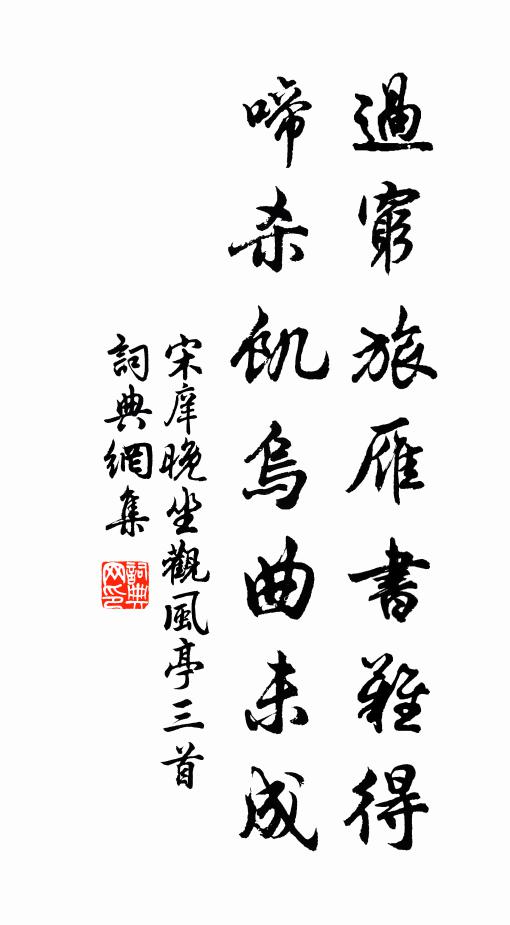 過窮旅雁書難得
啼殺飢烏曲未成
宋庠晚坐觀風亭三首
詞典網集
詞典
网印